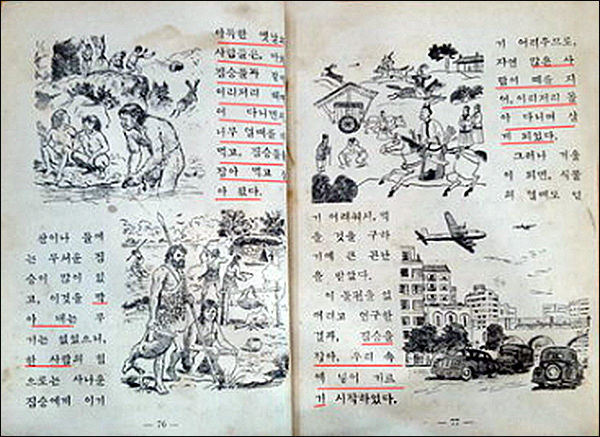 아득한 옛날의
사람들은,
짐승들과
이리저리
어 다니면서
나무 열매를
먹고, 짐승들을
잡아 먹고 살
아 왔다.
산이나 들에
는 무서운 짐
승이 많이 있
고, 이것을 막
아 내는 무
기는 없었으니,
한 사람의 힘
으로는 사나운
짐승에게 이기
— 76 —
기 어려우므로,
자연 많은 사
람이 떼를 지
어, 이리저리 돌
아 다니며 살
게 되었다.
그러나 겨울
이 되면, 식물
의 열매도 얻
기 어려워서, 먹
을 것을 구하
기에 큰 곤난
을 받았다.
이 불편을 없
이려고 연구한
결과, 짐승을
잡아, 우리 속
에 넣어 기르
기 시작하였다.
— 77 —